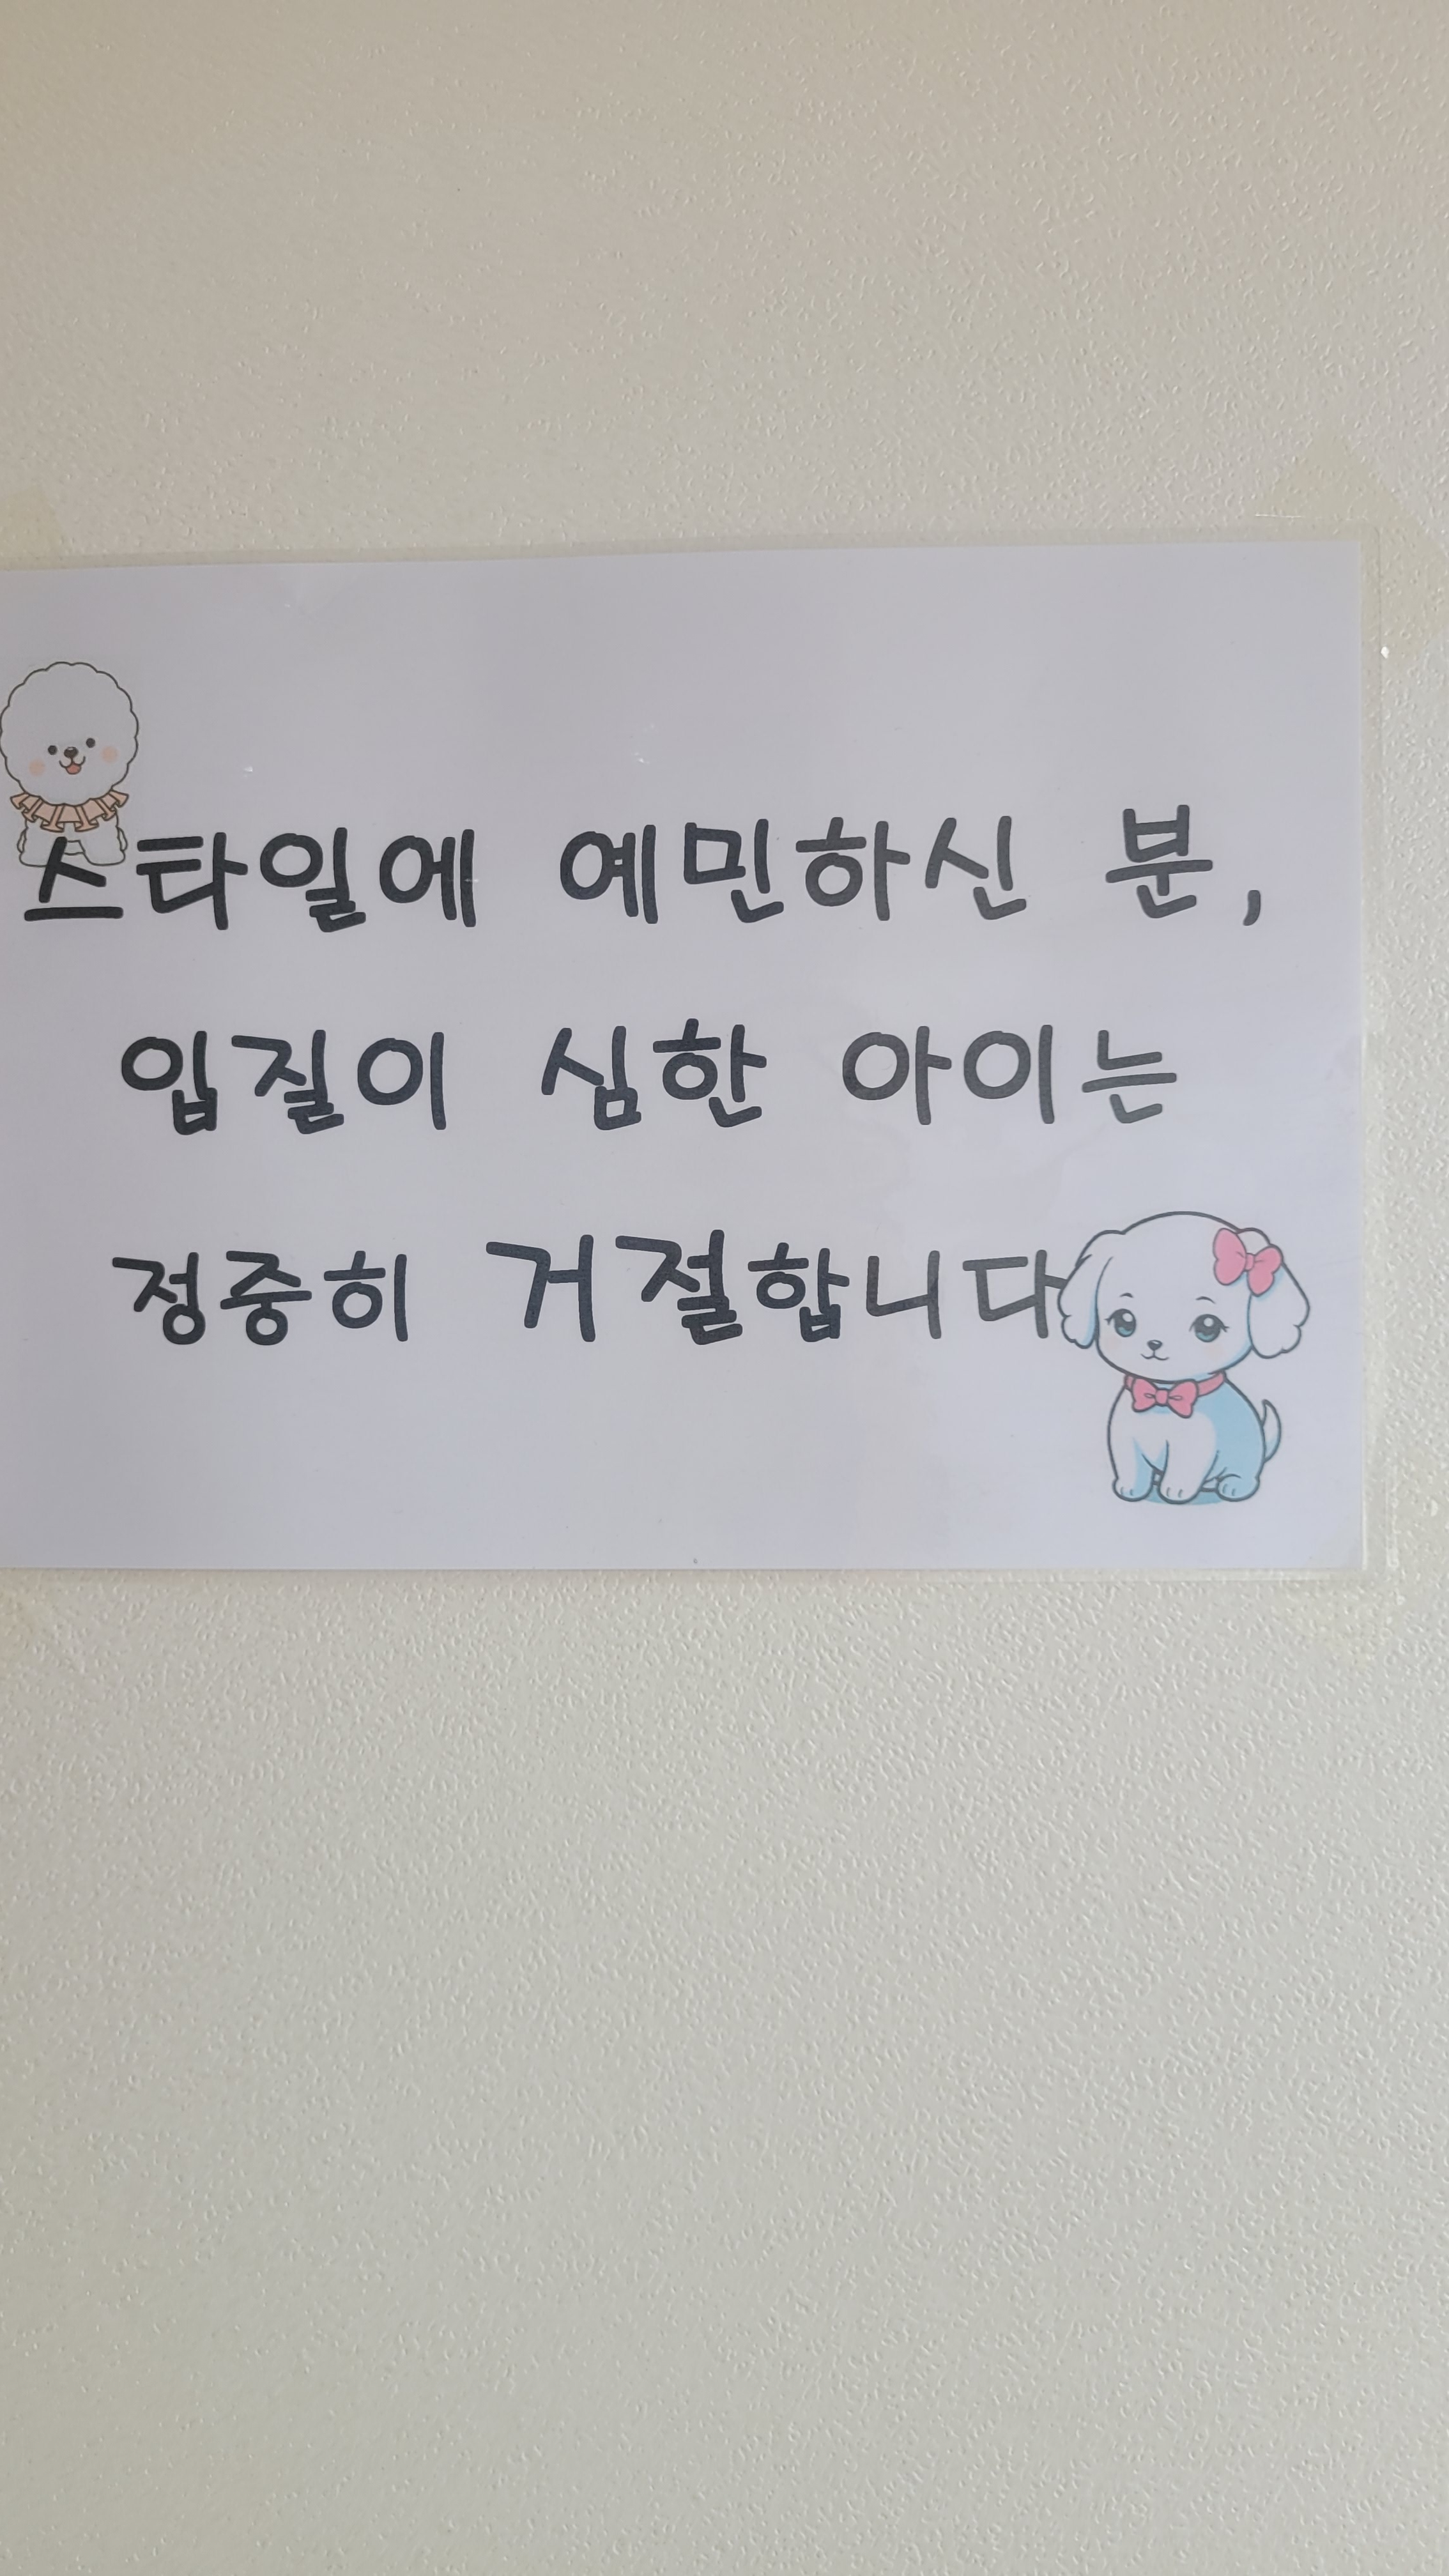 스타일에 예민하신 분,
입질이 심한 아이는
정중히 거절합니다